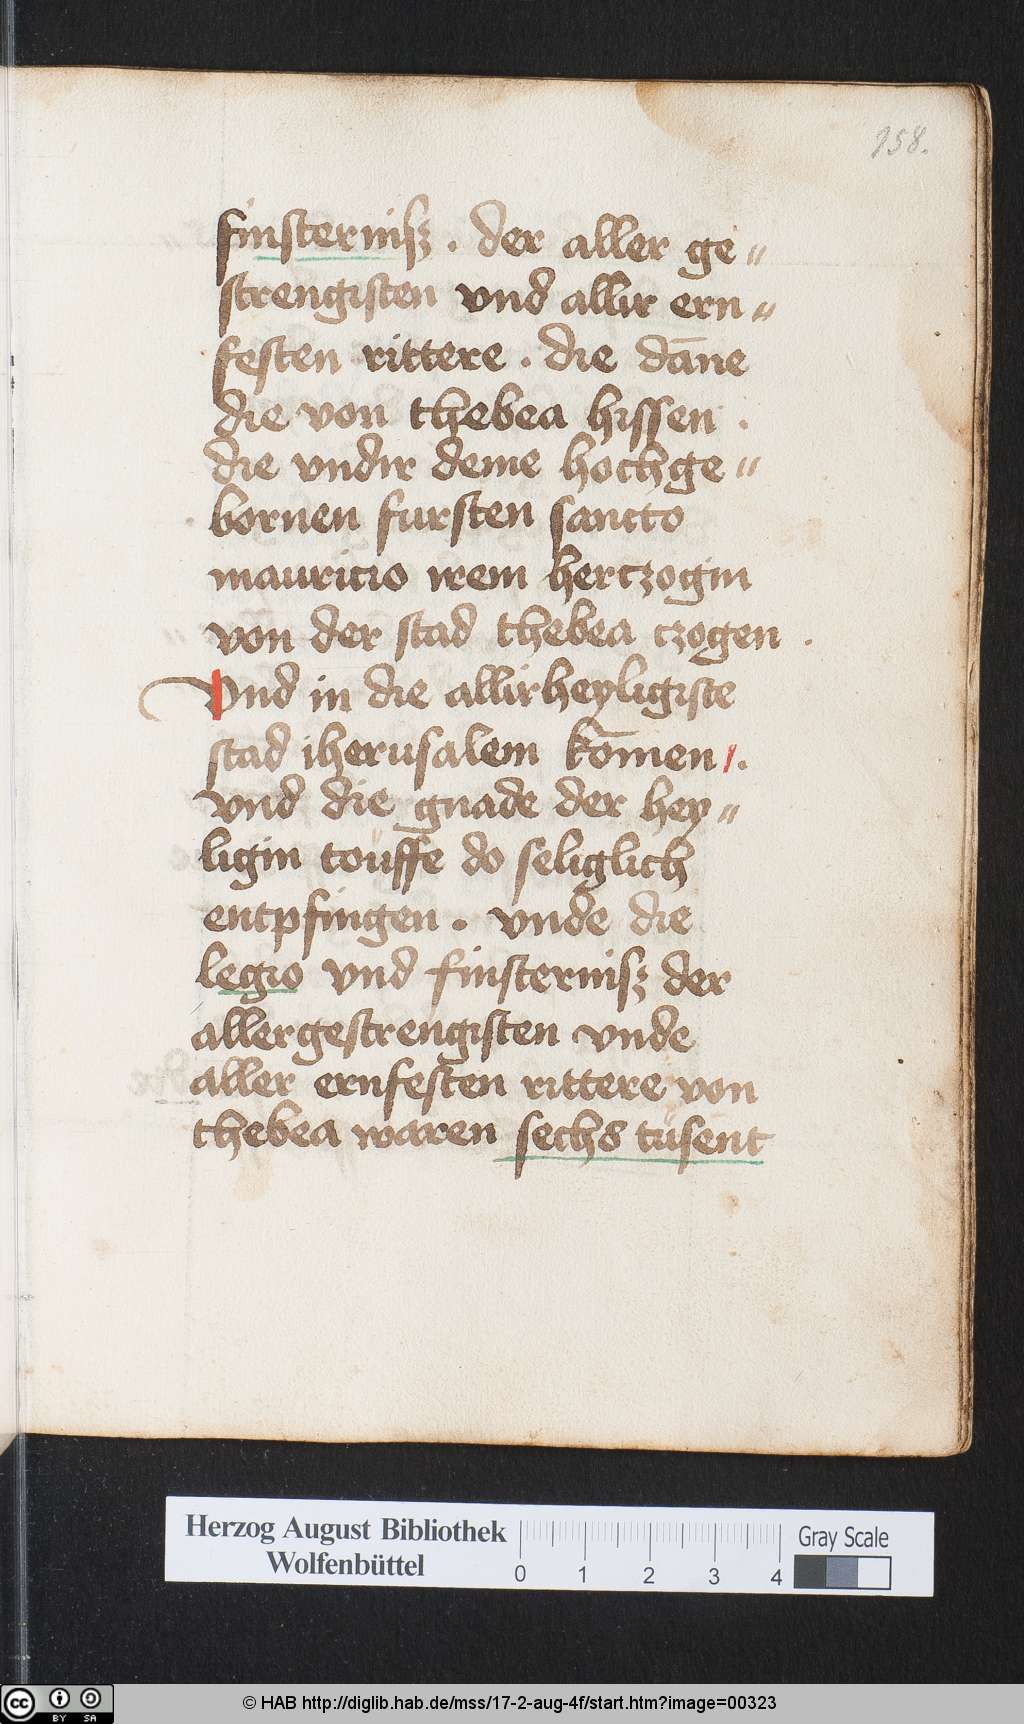 158.
finsterniß . der aller ge〃
strengisten vnd allir ern〃
festen rittere . die dāne
die von thebea hissen .
die vndir deme hochge〃
bornen fursten sancto
mauricio irem hertzogin
von der stad thebea czogen .
Vnd in die allirheyligiste
stad iherusalem kōmen .
vnd die gnade der hey〃
ligin toüffe do seliglich
entpfingen . vnde die
legio vnd finsterniß der
allergestrengisten vnde
aller ernfesten rittere von
thebea waren sechs tüsent
Herzog August Bibliothek
Wolfenbüttel
0 1 2 3 4
Gray Scale
cc BY SA
© HAB http://diglib.hab.de/mss/17-2-aug-4f/start.htm?image=00323